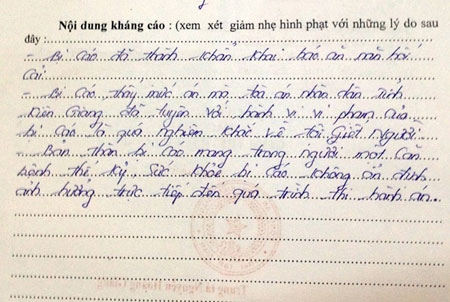 Nội dung kháng cáo : (xem xét giảm nhẹ hình phạt với những lý do sau
đây :
- Bị cáo đã thành khẩn khai báo ăn năn hối
Cải
- Bị cáo thấy mức án mà tòa án nhân dân tỉnh
Kiên Giang đã tuyên với hành vi vi phạm của
bị cáo là quá nghiêm khắc về tội Giết Người
- Bản thân bị cáo mang trong người một Căn
bệnh thế kỷ sức khỏe bị cáo không ổn định
ảnh hưởng trực tiếp đến quá trình thi hành án.